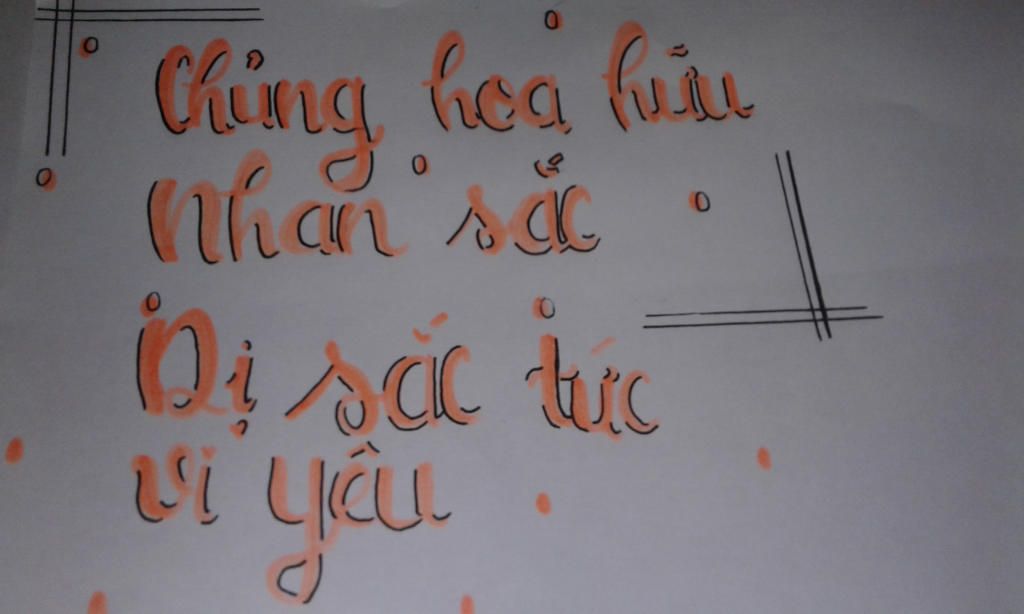 Chủng hoa hữu
Nhan sắc
Dị sắc tức
vi yêu